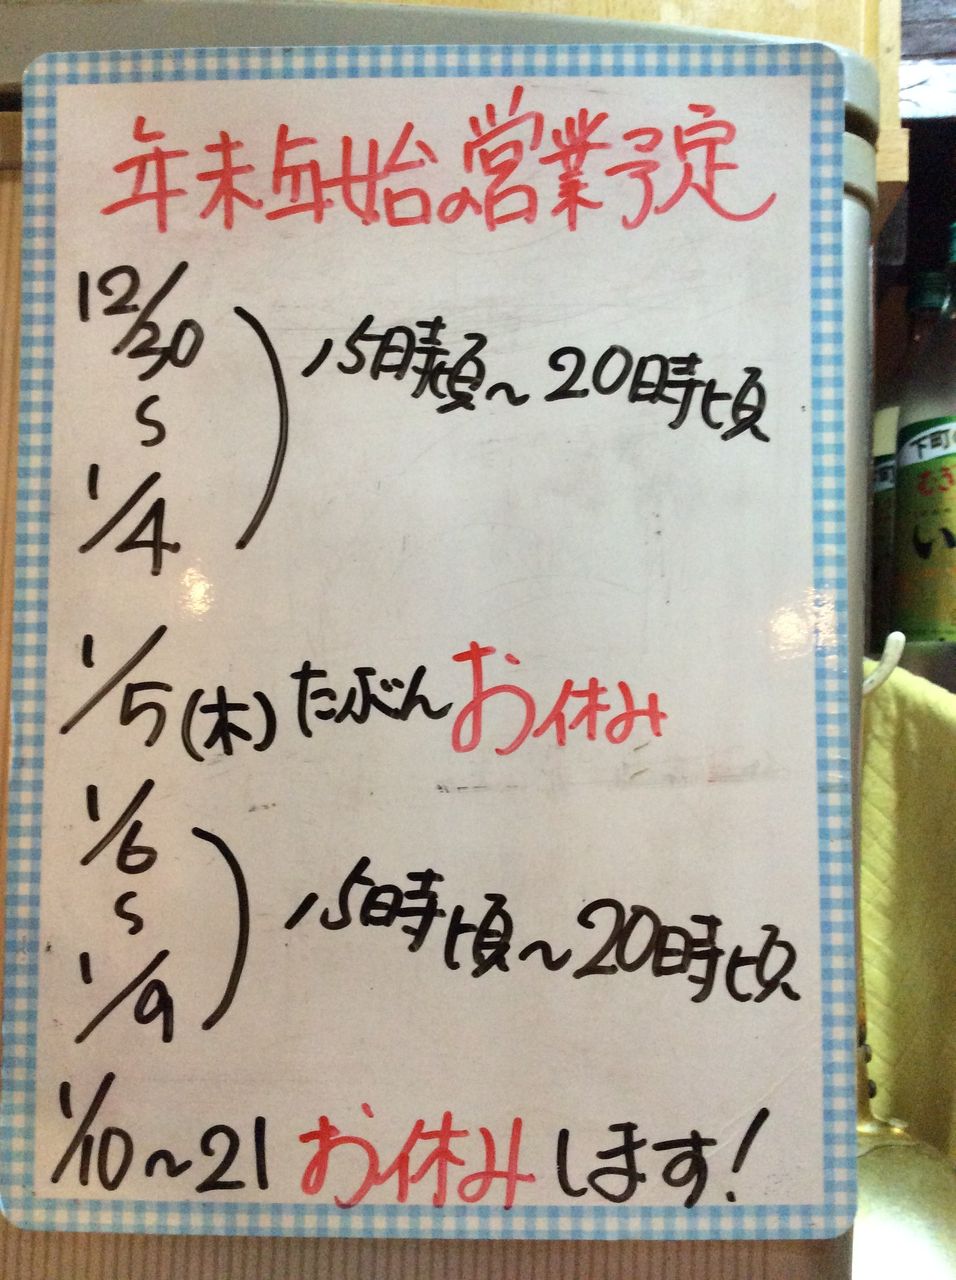 年末年始の営業予定
12/30
〜
1/4
15時頃〜20時頃
1/5(木)たぶんお休み
1/6
〜
1/9
15時頃〜20時頃
1/10〜21お休みします!
下町の
い